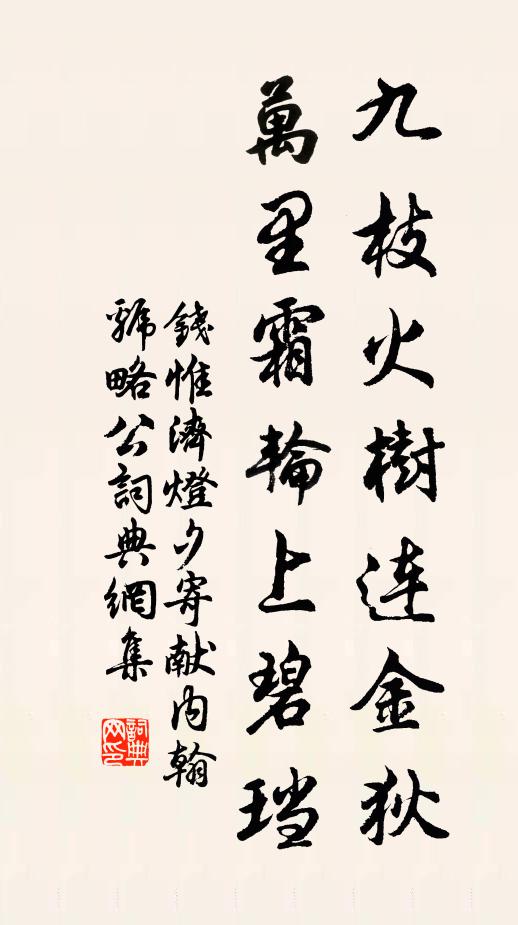 九枝火樹連金狄
萬里霜輪上碧璫
錢惟濟燈夕寄献內翰
虢略公詞典網集
詞典网印